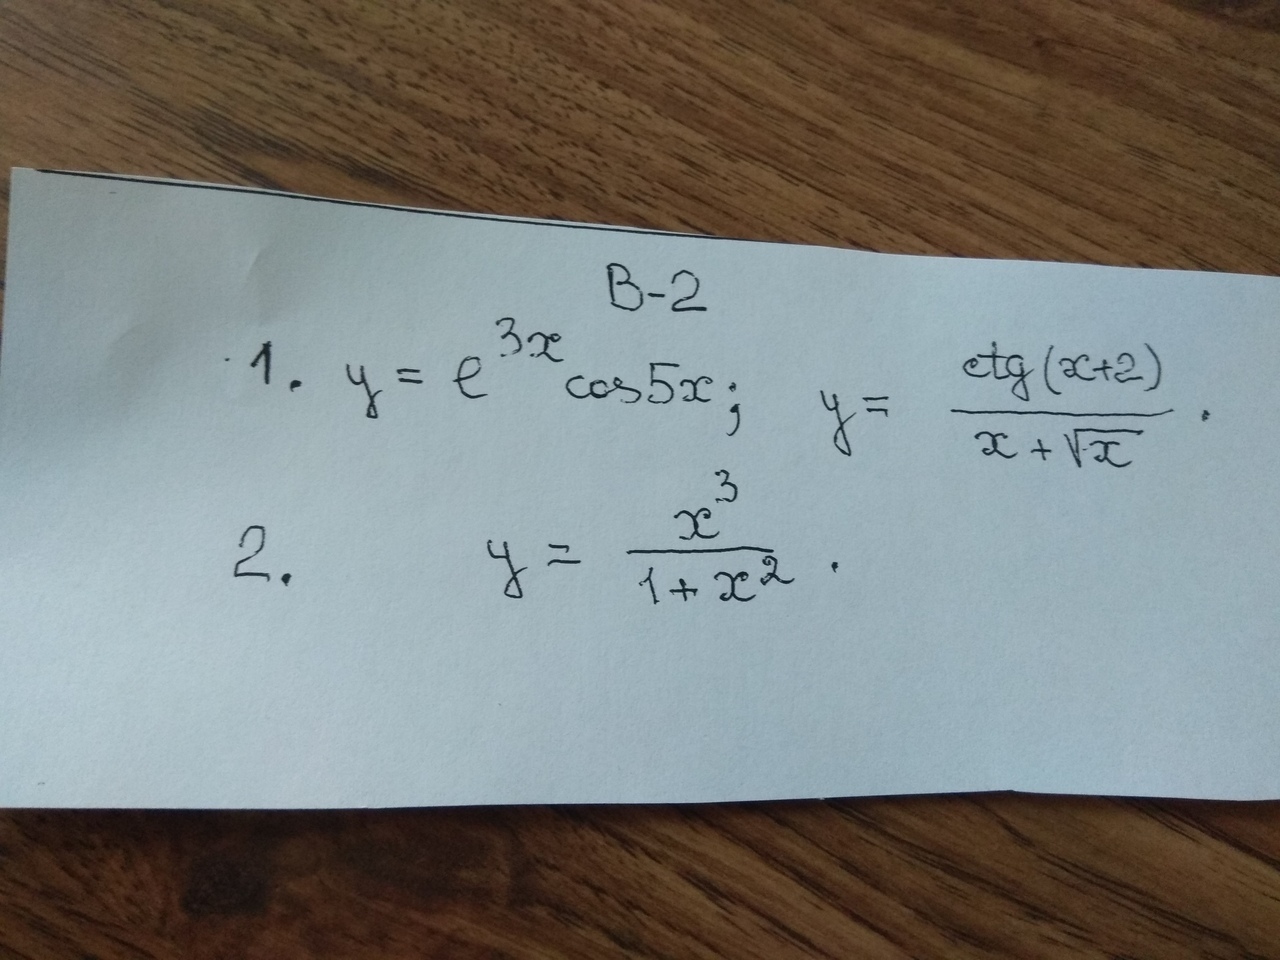 В-2
1. y = e^{3x} cos5x; y = \frac{ctg(x+2)}{x+\sqrt{x}}.
2. y = \frac{x^3}{1+x^2}.